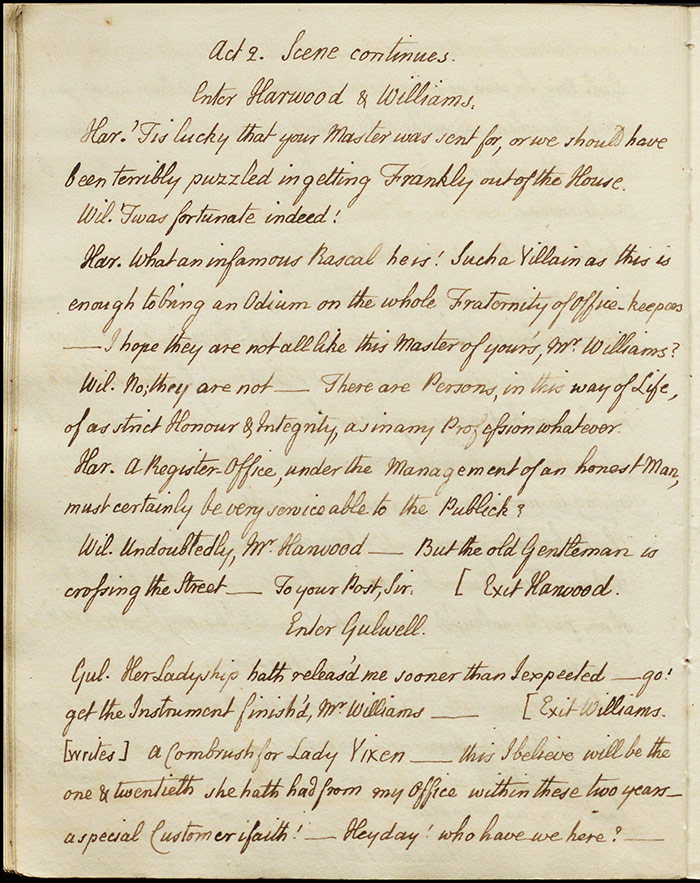 Act 2. Scene continues.
Enter Harwood & Williams.
Har. 'Tis lucky that your Master was sent for, or we should have
been terribly puzzled in getting Frankly out of the House.
Wil. 'Twas fortunate indeed!
Har. What an infamous Rascal he is! Such a Villain as this is
enough to bring an Odium on the whole Fraternity of Office-keepers
— I hope they are not all like this Master of your's, Mr. Williams?
Wil. No; they are not — There are Persons, in this way of Life,
of as strict Honour & Integrity, as in any Profession whatever.
Har. A Register-Office, under the Management of an honest Man,
must certainly be very serviceable to the Publick?
Wil. Undoubtedly, Mr. Harwood — But the old Gentleman is
crossing the Street — To your Post, Sir. [ Exit Harwood.
Enter Gulwell.
Gul. Her Ladyship hath releas'd me sooner than I expected — go!
get the Instrument finish'd, Mr. Williams — [ Exit Williams.
[writes] A Combrush for Lady Vixen — this I believe will be the
one & twentieth she hath had from my Office within these two years—
a special Customer i'faith! — Heyday! who have we here? —